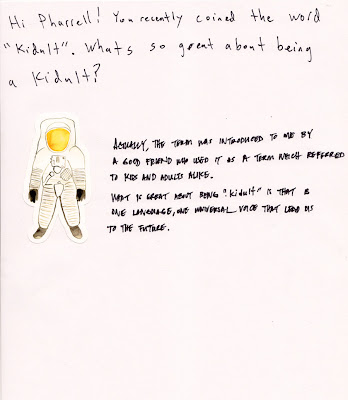 Hi Pharrell! You recently coined the word
"Kidult". Whats so great about being
a Kidult?
ACTUALLY, THE TERM WAS INTRODUCED TO ME BY
A GOOD FRIEND WHO USED IT AS A TERM WHICH REFERRED
TO KIDS AND ADULTS ALIKE.
WHAT IS GREAT ABOUT BEING "KIDULT" IS THAT IS
ONE LANGUAGE, ONE UNIVERSAL VOICE THAT LEAD US
TO THE FUTURE.